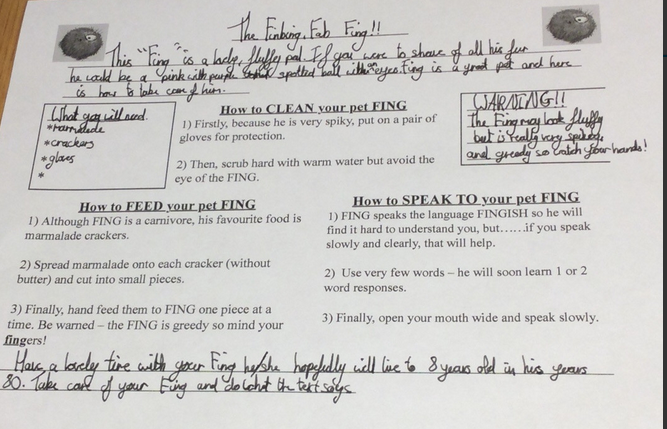 The Finbing, Fab Fing!!
This "Fing" is a lovely, fluffy pal If you were to shave of all his fur
he would be a pink with purple spotted ball with an eyes. Fing is a great pet and here
is how to take care of him.
What you will need.
*marmalade
*crackers
*gloves
*
How to CLEAN your pet FING
1) Firstly, because he is very spiky, put on a pair of
gloves for protection.
2) Then, scrub hard with warm water but avoid the
eye of the FING.
WARNING!!
The Fing may look fluffy
but is really very spikey
and greedy so watch your hands!
How to FEED your pet FING
1) Although FING is a carnivore, his favourite food is
marmalade crackers.
2) Spread marmalade onto each cracker (without
butter) and cut into small pieces.
3) Finally, hand feed them to FING one piece at a
time. Be warned – the FING is greedy so mind your
fingers!
How to SPEAK TO your pet FING
1) FING speaks the language FINGISH so he will
find it hard to understand you, but……if you speak
slowly and clearly, that will help.
2) Use very few words – he will soon learn 1 or 2
word responses.
3) Finally, open your mouth wide and speak slowly.
Have a lovely time with your Fing he/she hopefully will live to 8 years old in his years
80. Take care of your Fing and do what the text says